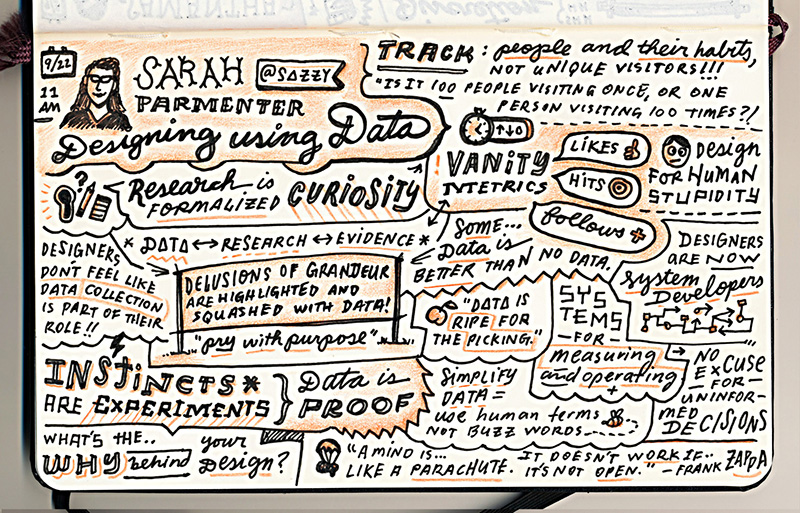 9/22
11
AM
SARAH
@SAZZY
PARMENTER
Designing using Data
TRACK: people and their habits,
NOT UNIQUE VISITORS!!!
"IS IT 100 PEOPLE VISITING ONCE, OR ONE
PERSON VISITING 100 TIMES?!
Research is
FORMALIZED CURIOSITY
VANITY
METRICS
LIKES
HITS
follows
DESIGN
FOR HUMAN
STUPIDITY
* DATA ↔ RESEARCH ↔ EVIDENCE *
DESIGNERS
DON'T FEEL LIKE
DATA COLLECTION
IS PART OF THEIR
ROLE!!
DELUSIONS OF GRANDEUR
ARE HIGHLIGHTED AND
SQUASHED WITH DATA!
"pry with purpose"
SOME...
Data is
BETTER THAN NO DATA.
DESIGNERS
ARE NOW
System
Developers
"DATA IS
RIPE FOR
THE PICKING."
SYS
TEMS
-FOR-
measuring
and operating
INSTINCTS*
ARE EXPERIMENTS
Data is
PROOF
SIMPLIFY
DATA =
use human terms
NOT BUZZ WORDS
NO
EXCUSE
-FOR-
UNINFOR-
MED
DECISIONS
WHAT'S THE..
WHY behind
your
Design?
"A MIND IS...
LIKE A PARACHUTE.
IT DOESN'T WORK IF..
IT'S NOT OPEN." -FRANK ZAPPA